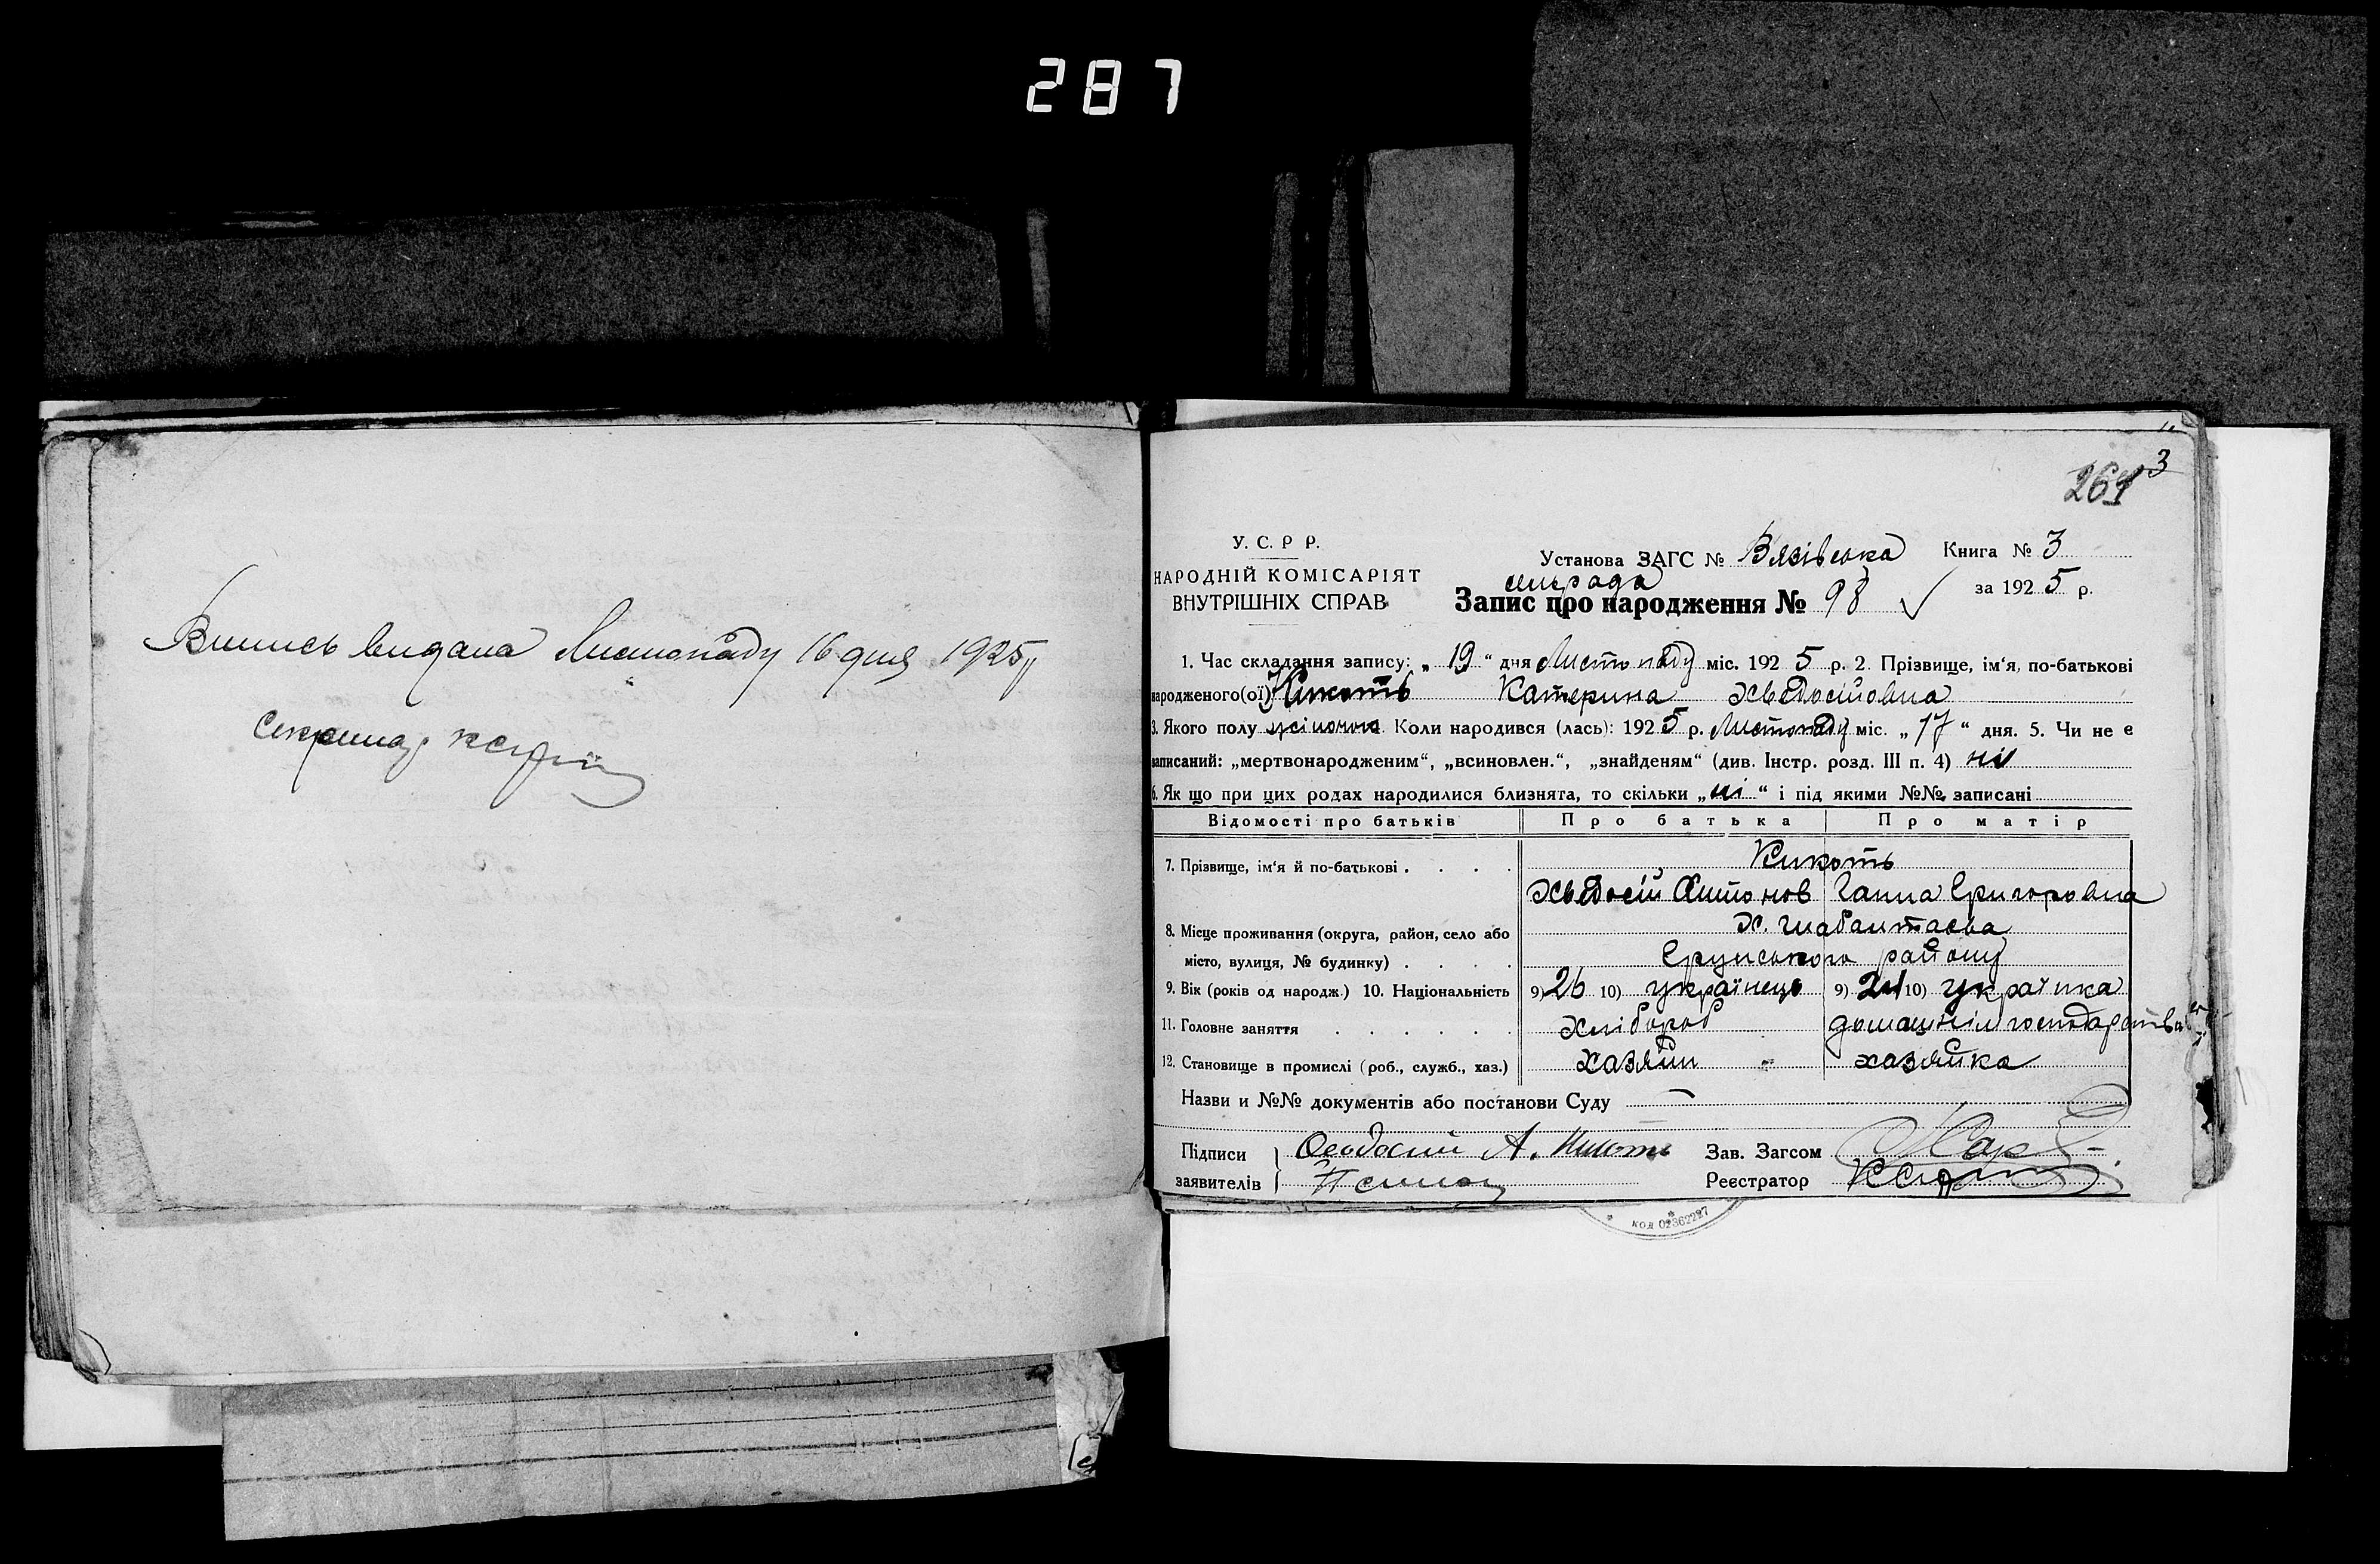 287
Випись видана Листопаду 16 дня 1925 р
Секретар
264 3
У. С. Р Р.
НАРОДНІЙ КОМІСАРІЯТ
ВНУТРІШНІХ СПРАВ
Установа ЗАГС № Вязівська Книга № 3
сільрада
Запис про народження № 98 за 192 5 р.
1. Час складання запису: „ 19 “ дня Листопаду міс. 192 5 р. 2. Прізвище, ім'я, по-батькові
народженого(ої) Кикоть Катерина Хведосіївна
3. Якого полу жіночого Коли народився (лась): 192 5 р. Листопаду міс. „ 17 “ дня. 5. Чи не є
записаний: „мертвонародженим“, „всиновлен.“, „знайденям“ (див. Інстр. розд. III п. 4) ні
6. Як що при цих родах народилися близнята, то скільки „ ні “ і під якими №№ записані
Відомості про батьків Про батька Про матір
7. Прізвище, ім'я й по-батькові . . . . Кикоть
Хведосій Антонов Ганна Григоровна
8. Місце проживання (округа, район, село або Х.
місто, вулиця, № будинку) . . . . Грунського району
9. Вік (років од народж.) 10. Національність 9) 26 10) українець 9) 24 10) українка
11. Головне заняття . . . . . . Хлібороб домашнім господарством
12. Становище в промислі (роб., служб., хаз.) хазяїн хазяйка
Назви и №№ документів або постанови Суду —
Підписи Феодосий А. Кикоть Зав. Загсом
заявителів Реєстратор
код 02362227